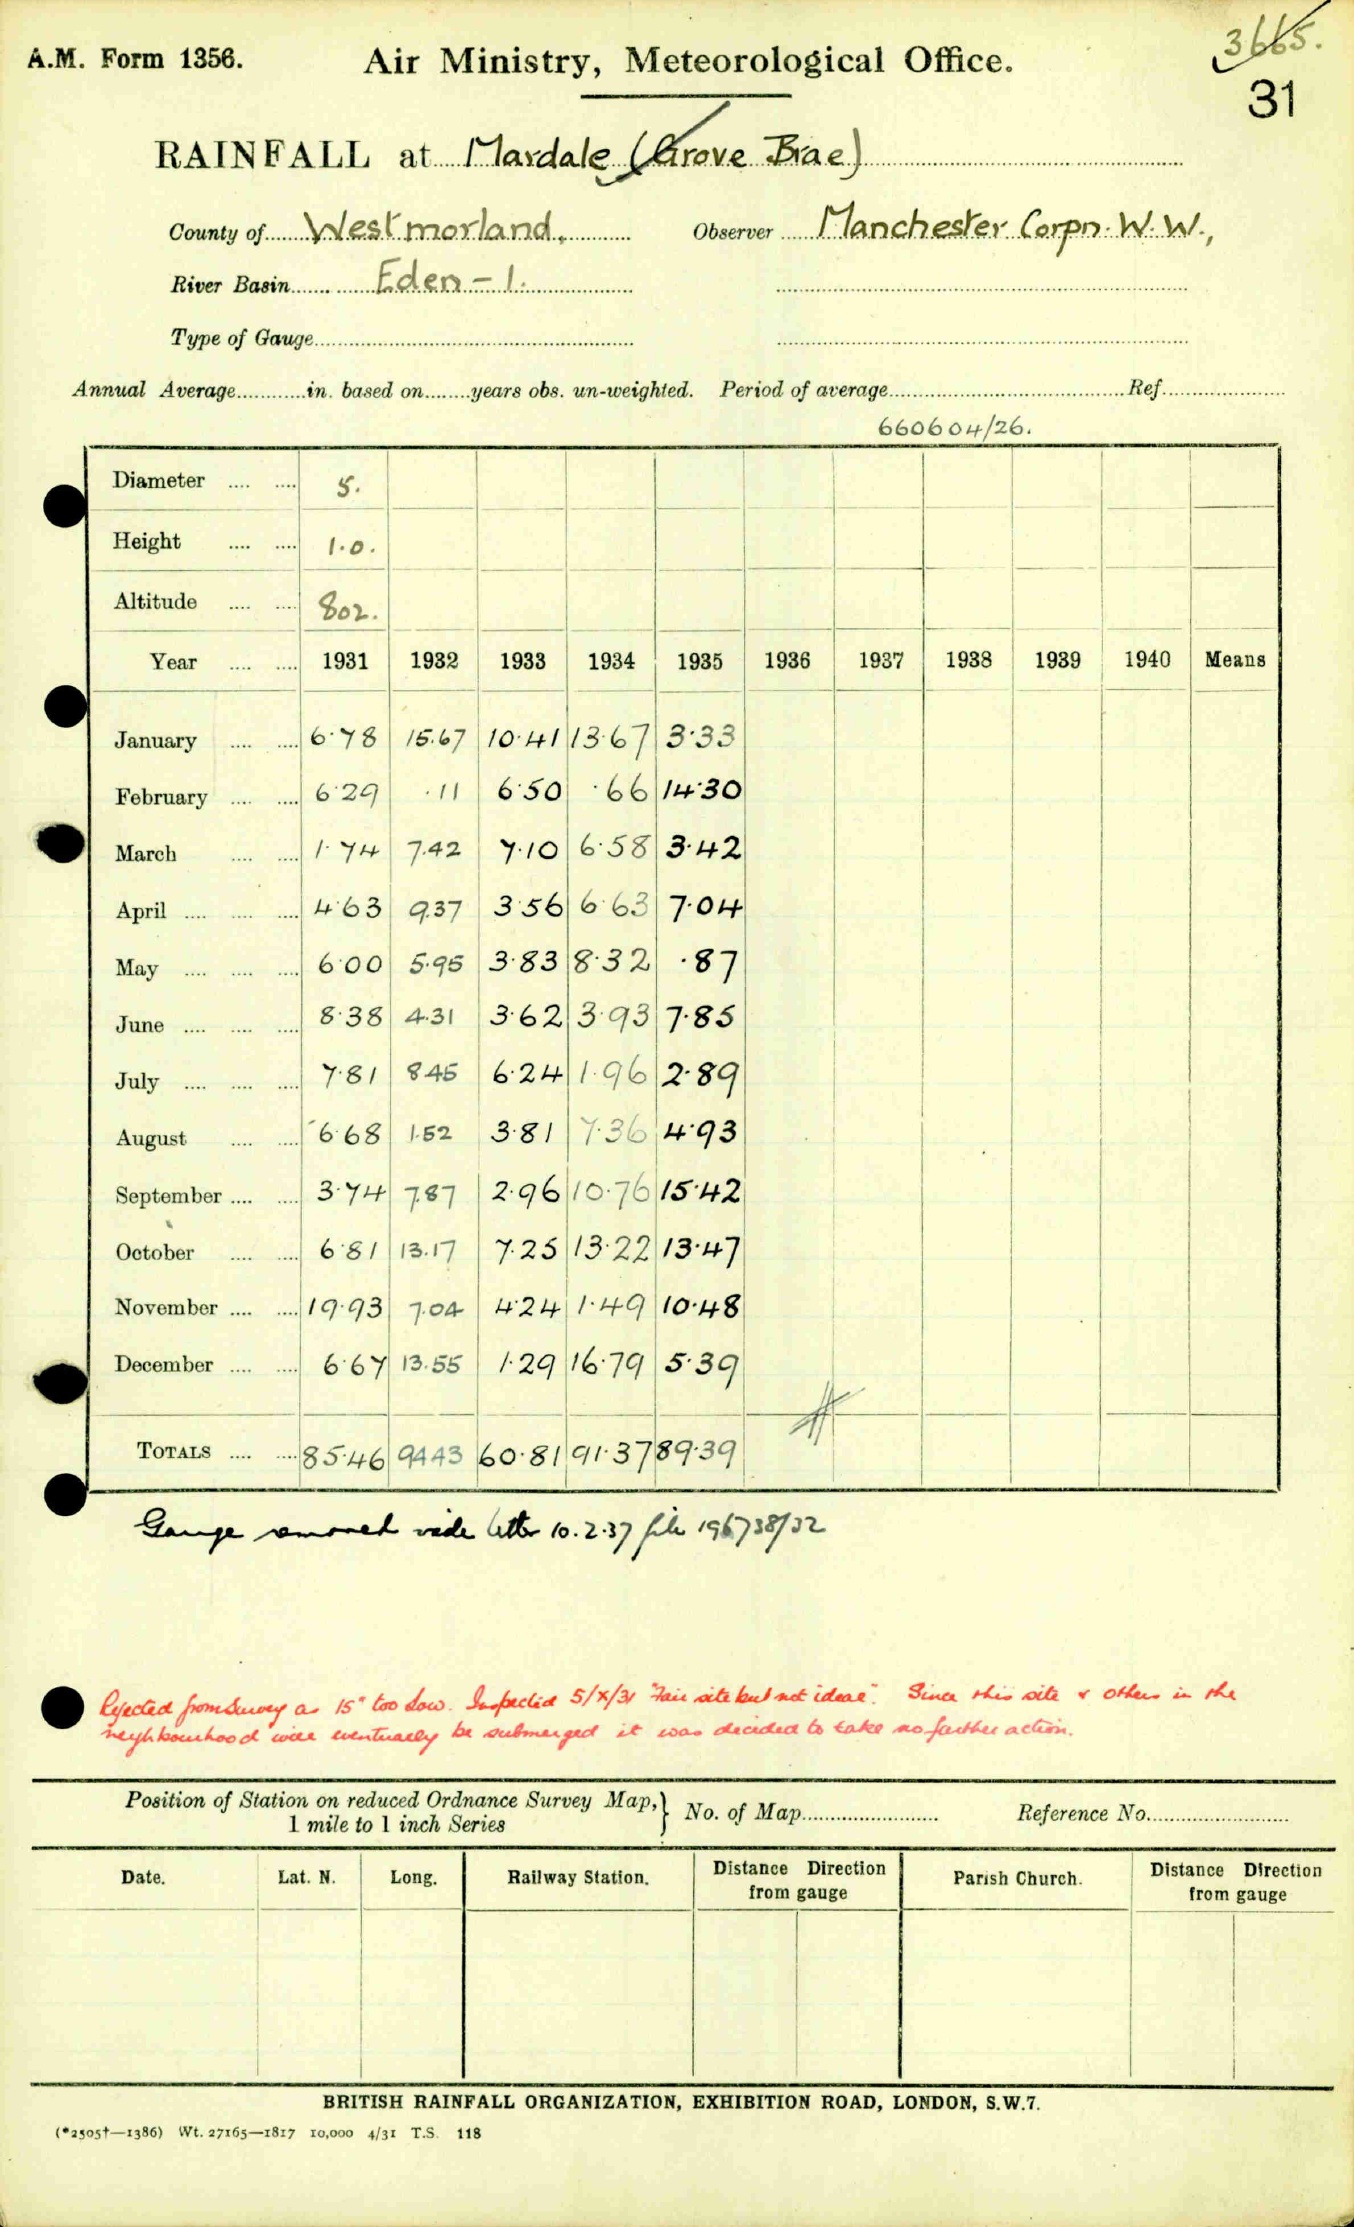 3665.
A.M. Form 1356. Air Ministry, Meteorological Office.
31
RAINFALL at Mardale (Grove Brae)
County of Westmorland. Observer Manchester Corpn. W.W.,
River Basin Eden - 1.
Type of Gauge
Annual Average in. based on years obs. un-weighted. Period of average Ref.
660604/26.
Diameter 5.
Height 1.0.
Altitude 802.
Year 1931 1932 1933 1934 1935 1936 1937 1938 1939 1940 Means
January 6.78 15.67 10.41 13.67 3.33
February 6.29 .11 6.50 .66 14.30
March 1.74 7.42 7.10 6.58 3.42
April 4.63 9.37 3.56 6.63 7.04
May 6.00 5.95 3.83 8.32 .87
June 8.38 4.31 3.62 3.93 7.85
July 7.81 8.45 6.24 1.96 2.89
August 6.68 1.52 3.81 7.36 4.93
September 3.74 7.87 2.96 10.76 15.42
October 6.81 13.17 7.25 13.22 13.47
November 19.93 7.04 4.24 1.49 10.48
December 6.67 13.55 1.29 16.79 5.39
TOTALS 85.46 94.43 60.81 91.37 89.39
Gauge removed vide letter 10.2.37 file 196738/32
Rejected from Survey as 15" too low. Inspected 5/X/31 "Fair site but not ideal". Since this site & others in the
neighbourhood will eventually be submerged it was decided to take no further action.
Position of Station on reduced Ordnance Survey Map, } No. of Map Reference No.
1 mile to 1 inch Series
Date. Lat. N. Long. Railway Station. Distance Direction from gauge Parish Church. Distance Direction from gauge
BRITISH RAINFALL ORGANIZATION, EXHIBITION ROAD, LONDON, S.W.7.
(*2505†—1386) Wt. 27165—1817 10,000 4/31 T.S. 118